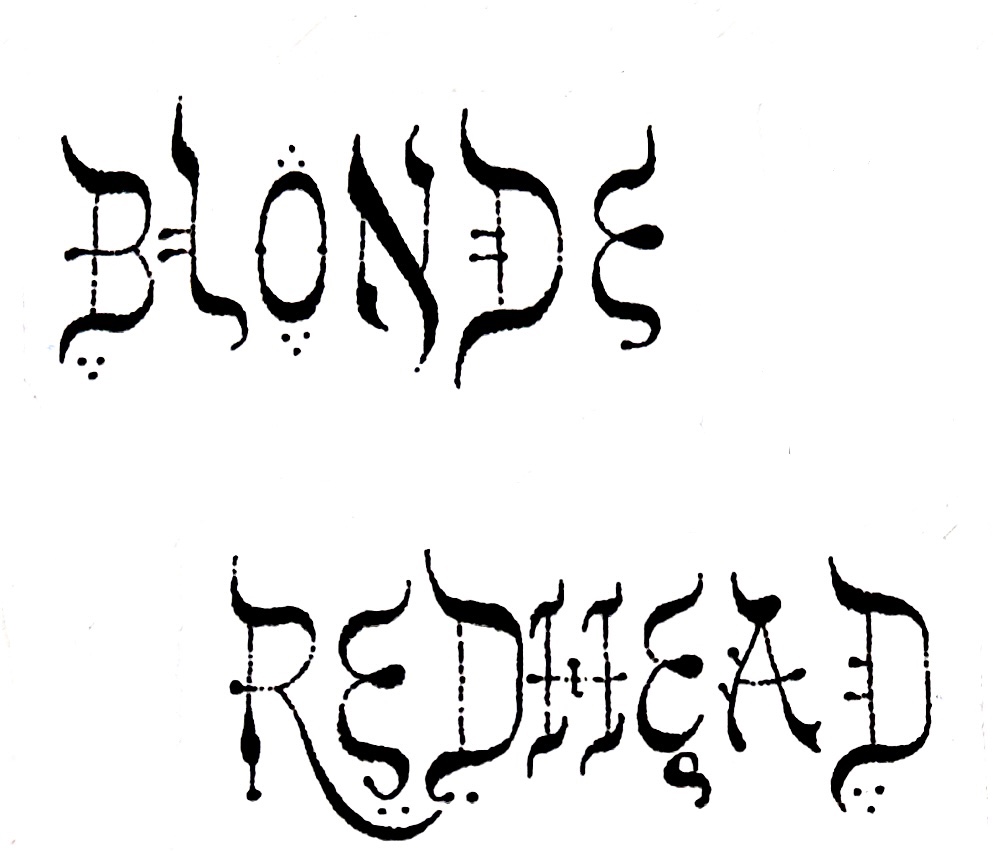 BlONDE
REDHEAD